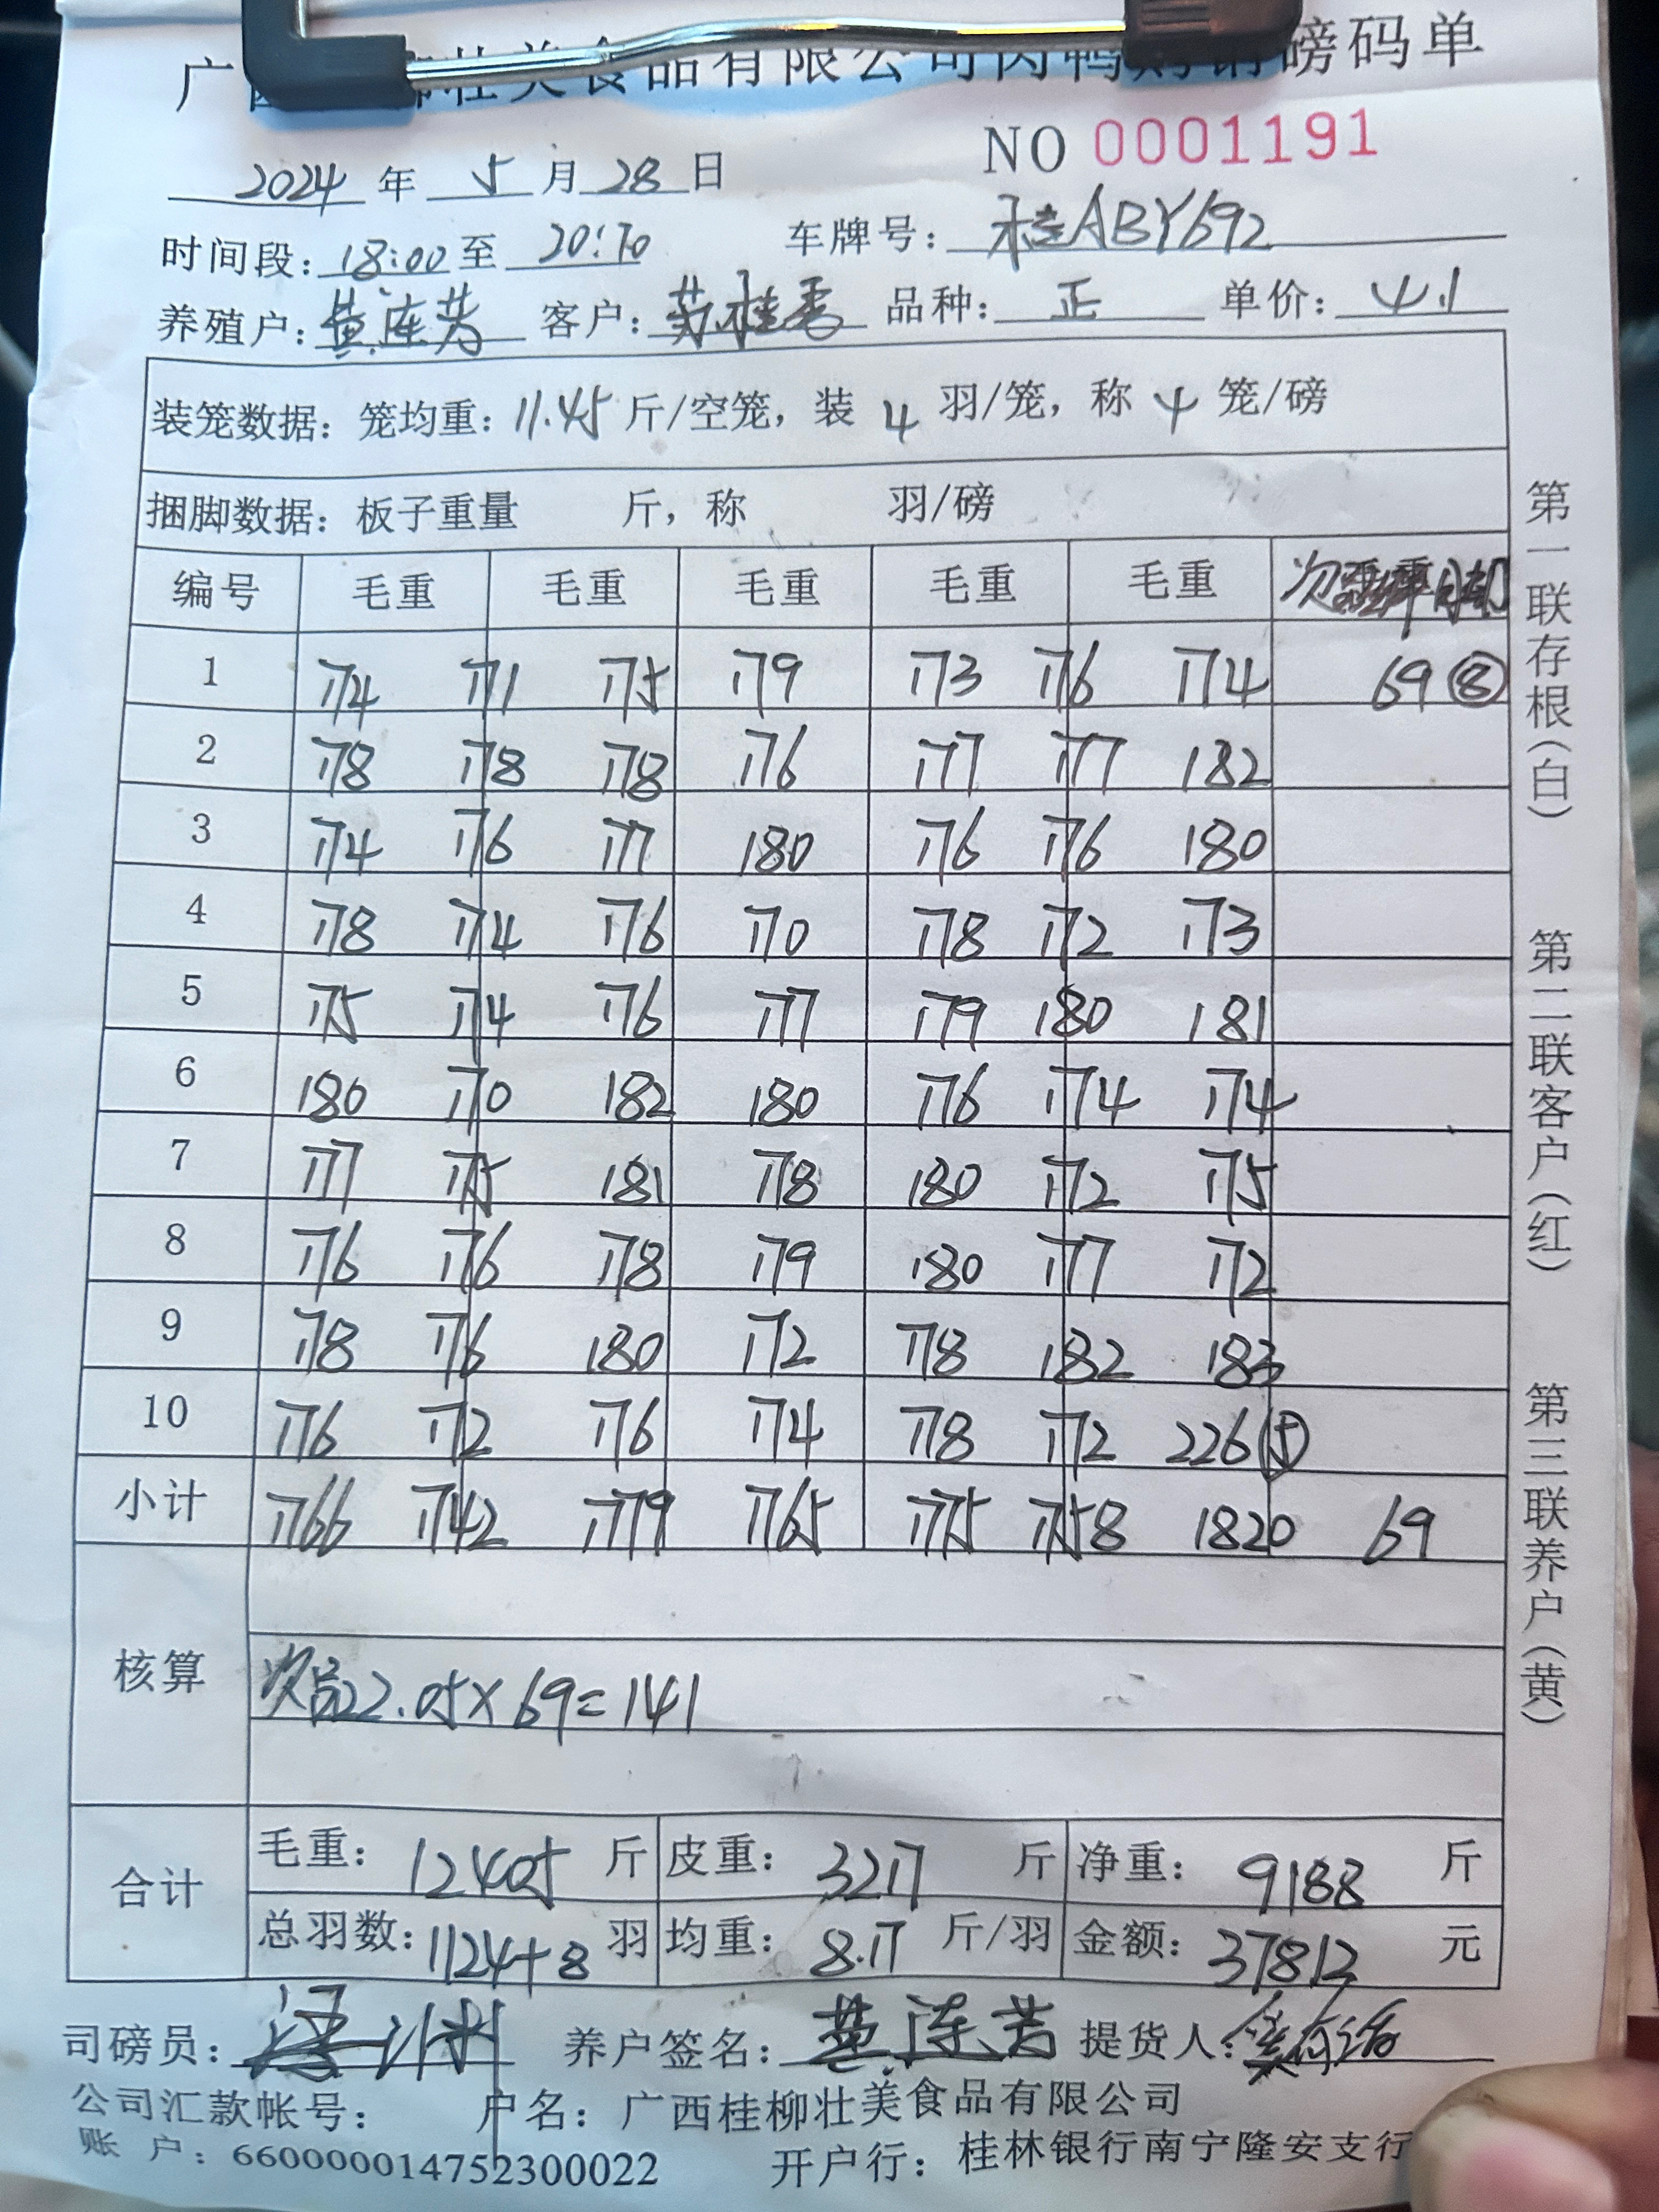 美食品有限公司肉鸭购销磅码单
NO 0001191
2024 年 5 月 28 日
时间段: 18:00 至 20:10 车牌号: 桂ABY692
养殖户: 黄连芳 客户: 苏桂秀 品种: 正 单价: 4.1
装笼数据: 笼均重: 11.45 斤/空笼, 装 4 羽/笼, 称 4 笼/磅
捆脚数据: 板子重量 斤, 称 羽/磅
编号 毛重 毛重 毛重 毛重 毛重 次
1 174 171 175 179 173 176 174 69 ⑧
2 178 178 178 176 177 177 182
3 174 176 177 180 176 176 180
4 178 174 176 170 178 172 173
5 175 174 176 177 179 180 181
6 180 170 182 180 176 174 174
7 177 175 181 178 180 172 175
8 176 176 178 179 180 177 172
9 178 176 180 172 178 182 183
10 176 172 176 174 178 172 226 ⑤
小计 1766 1742 1779 1765 1775 1758 1820 69
核算
次品2.05×69=141
合计
毛重: 12405 斤 皮重: 3217 斤 净重: 9188 斤
总羽数: 1124+8 羽 均重: 8.17 斤/羽 金额: 37812 元
司磅员: 养户签名: 黄连芳 提货人:
公司汇款帐号: 户名: 广西桂柳壮美食品有限公司
账 户: 660000014752300022 开户行: 桂林银行南宁隆安支行
第一联存根(白)
第二联客户(红)
第三联养户(黄)